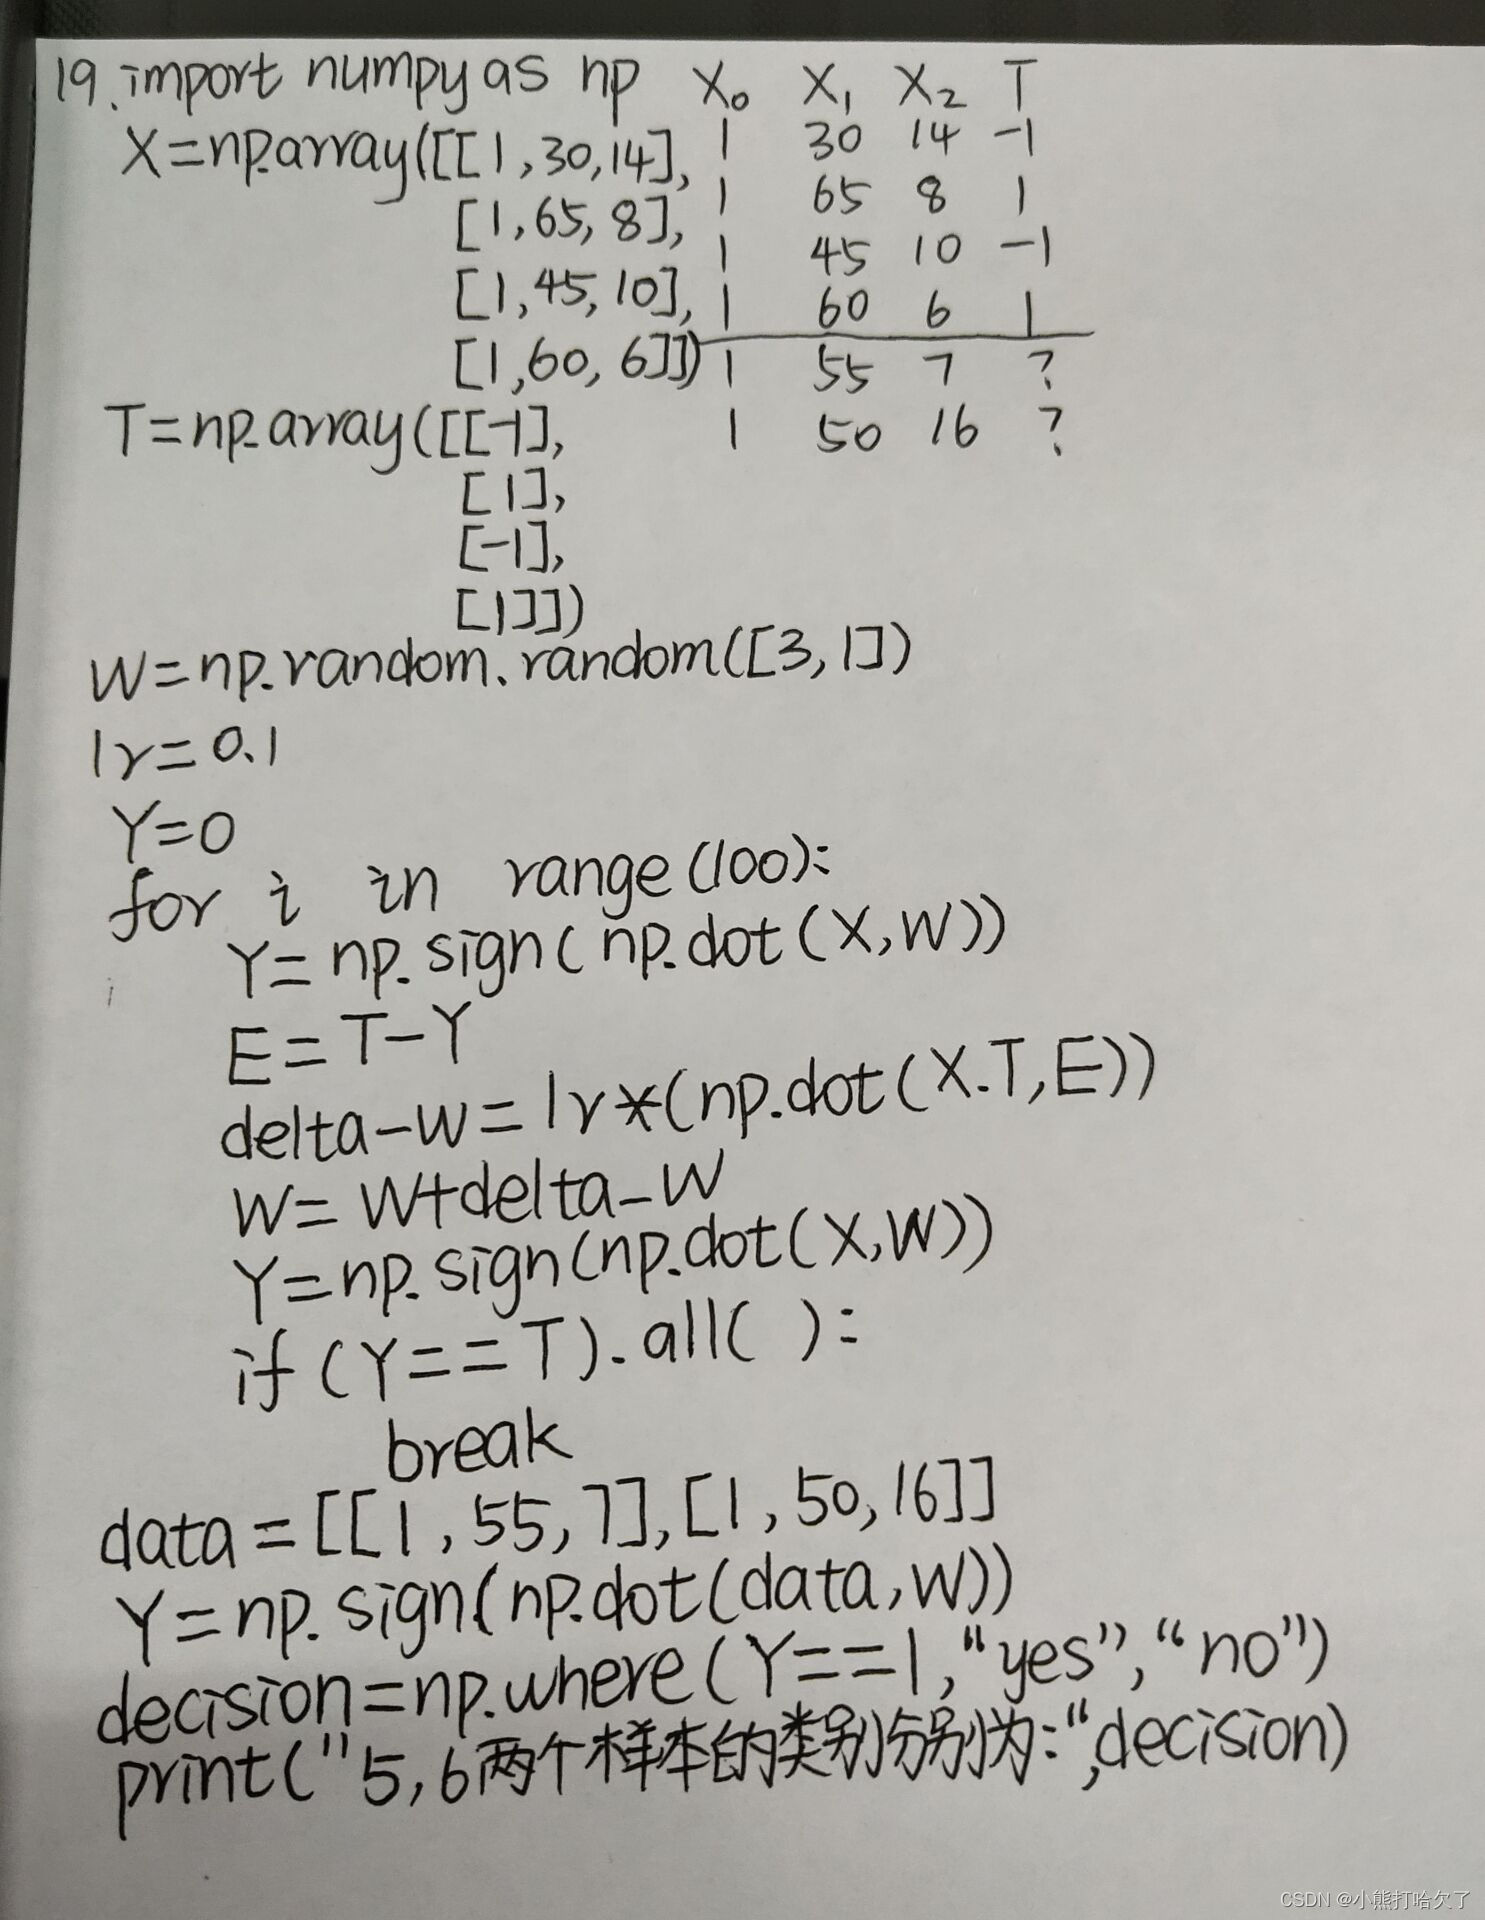 19.import numpy as np X₀ X₁ X₂ T
X=np.array([[1,30,14], 1 30 14 -1
[1,65,8], 1 65 8 1
[1,45,10], 1 45 10 -1
[1,60,6]]) 1 60 6 1
1 55 7 ?
T=np.array([[-1], 1 50 16 ?
[1],
[-1],
[1]])
W=np.random.random([3,1])
lr=0.1
Y=0
for i in range(100):
Y=np.sign(np.dot(X,W))
E=T-Y
delta-W=lr*(np.dot(X.T,E))
W=W+delta-W
Y=np.sign(np.dot(X,W))
if(Y==T).all( ):
break
data=[[1,55,7],[1,50,16]]
Y=np.sign(np.dot(data,W))
decision=np.where(Y==1,“yes”,“no”)
print("5,6两个样本的类别分别为:“,decision)
CSDN @小熊打哈欠了